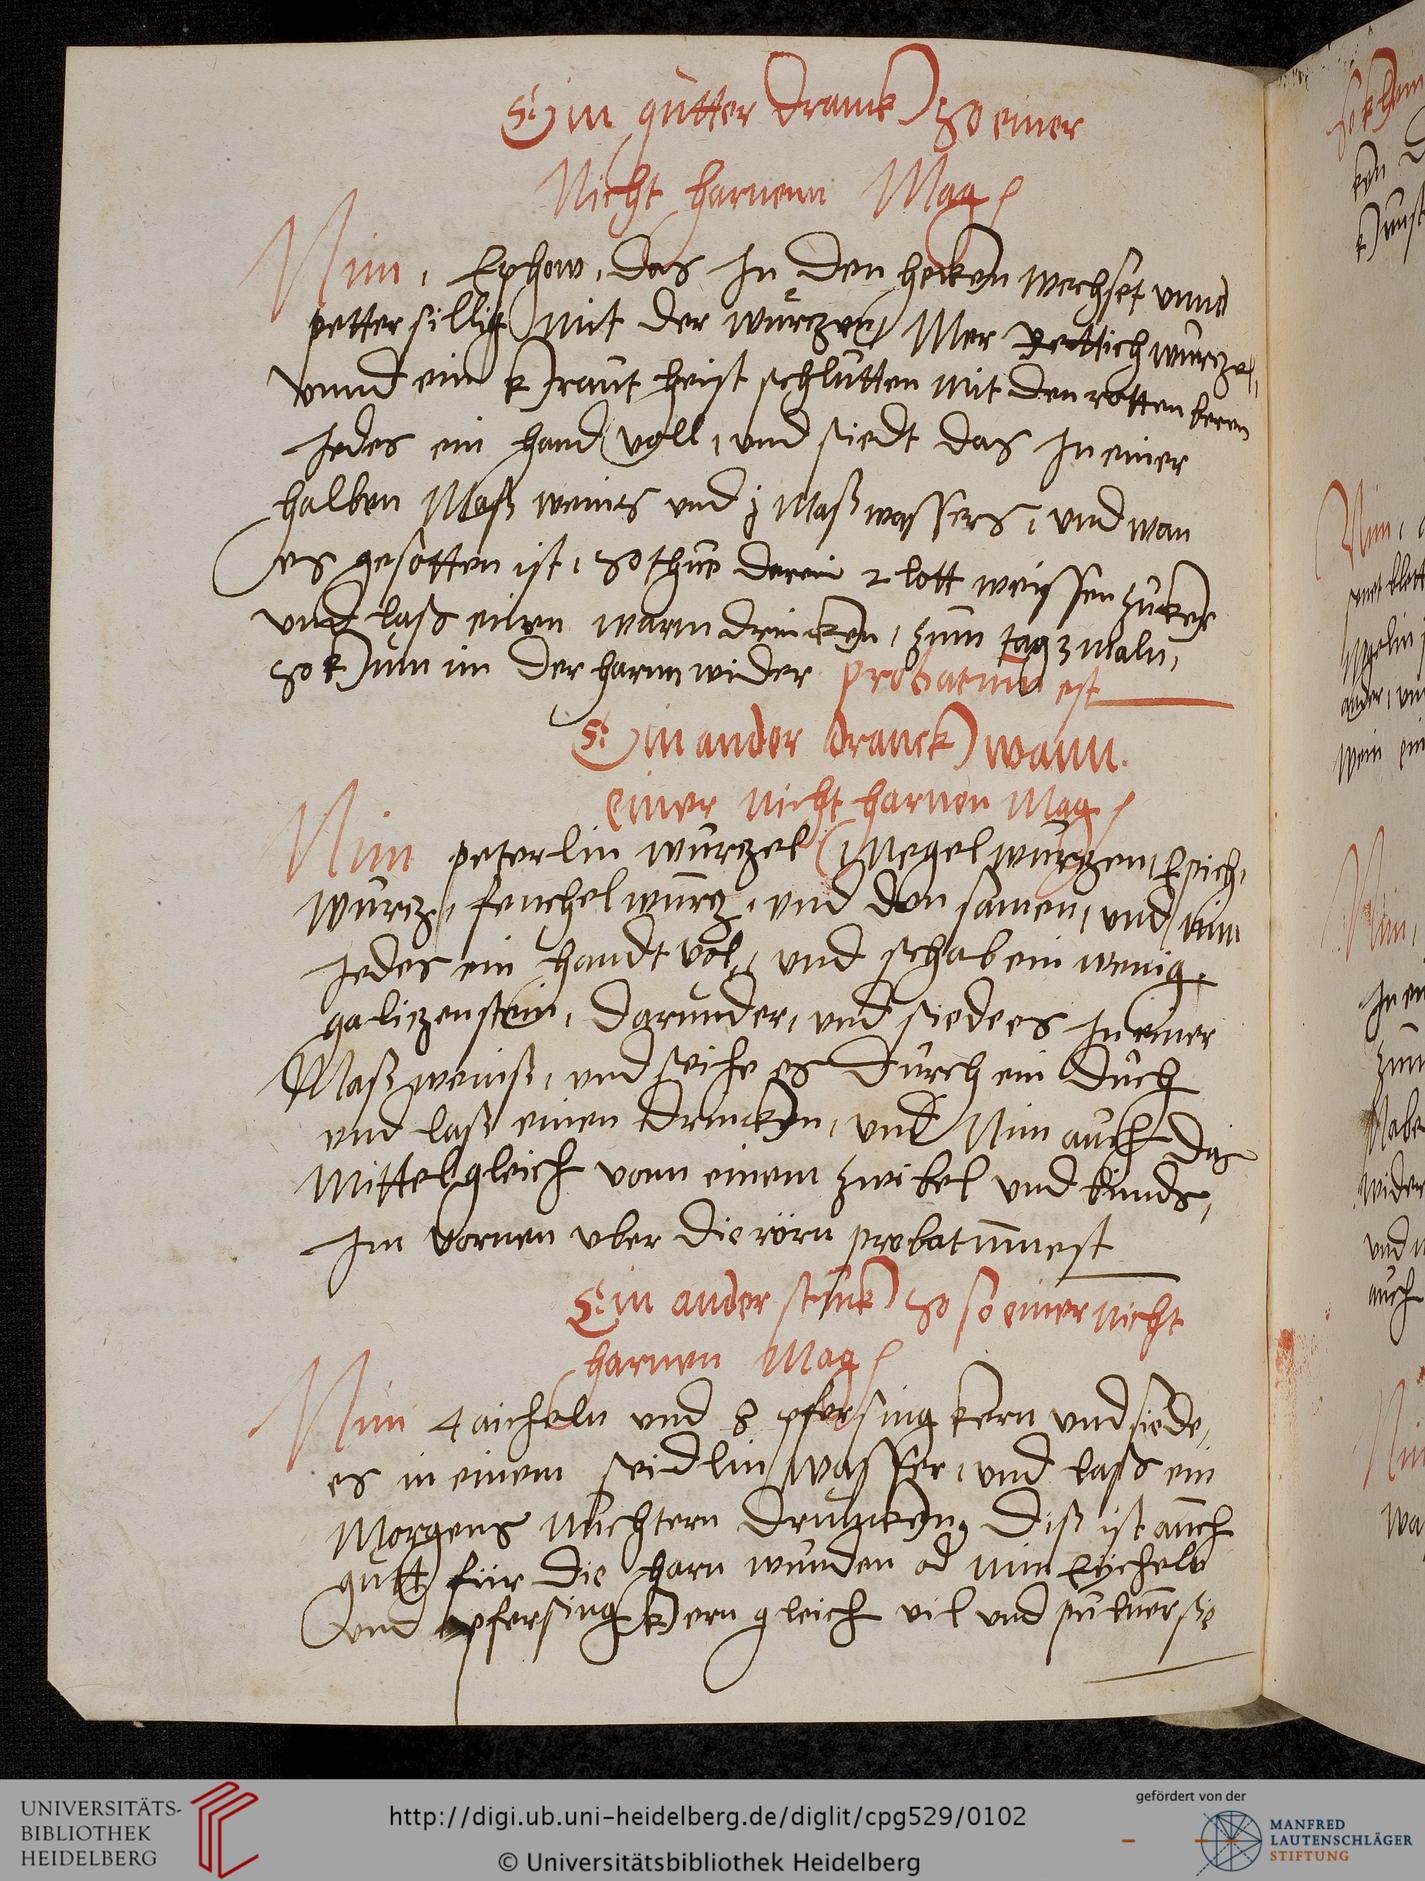 Ein gutter dranck so einer
Nicht harnenn Mag
Nim, Ephow, das In den hecken wechset vnnd
pettersillig mit der wurtzen Mer Rettich wurtzel,
vnnd ein kraut heist schlutten mit den rotten beren
Jedes ein hand voll, und siedt das In einer
halben Maß weins und j Maß wassers, und wan
es gesotten ist, so thue darein 2 lott weissen zucker
und laß einen warm drincken, zum tag 3 maln,
so kumt im der harnn wider probatum est
Ein ander dranck wann
einer nicht harnen Mag
Nim peterlin wurtzel Negel wurtzen Epich
wurtz, fenchel wurtz, und den samen, und nim
Jedes ein handt vol, und schab ein wenig
galitzenstein, darunder, und siede es In einer
Maß weinß, und seihe es durch ein duch
und laß einen drincken, und Nim auch das
Mittel gleich vonn einem zwibel und binds,
Im vornen vber die rörn probatum est
Ein ander stuck so so einer nicht
harnen Mag
Nim 4 aicheln und 8 pfersing kern und siede,
es in einem seidlin wasser, und laß ein
Morgens nüchtern drincken, diß ist auch
gutt für die harn wunden od nim Eicheln
und pfersing kern gleich vil und puluer sie
UNIVERSITÄTS-
BIBLIOTHEK
HEIDELBERG
http://digi.ub.uni-heidelberg.de/diglit/cpg529/0102
© Universitätsbibliothek Heidelberg
gefördert von der
MANFRED
LAUTENSCHLÄGER
STIFTUNG